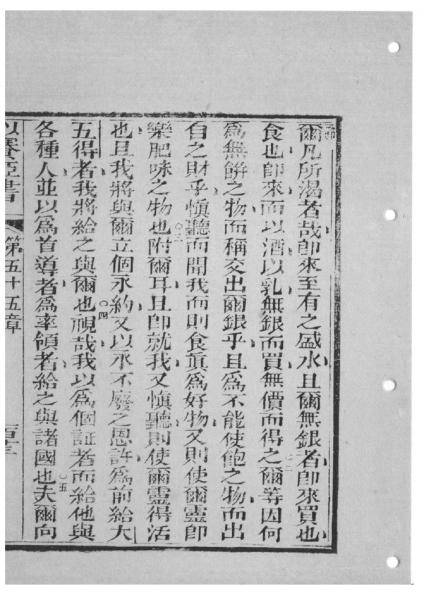 爾凡所渴者哉卽來至有之盛水且爾無銀者卽來買也
食也卽來而以酒以乳無銀而買無價而得之爾等因何
爲無餅之物而稱交出爾銀乎且爲不能使飽之物而出
自之財乎愼聽而聞我而則食眞爲好物又則使爾靈卽
樂肥味之物也附爾耳且卽就我又愼聽則使爾靈得活
也且我將與爾立個永約又以永不廢之恩許爲前給大
五得者我將給之與爾也視哉我以爲個証者而給他與
各種人並以爲首導者爲率領者給之與諸國也夫爾向
以賽亞書 第五十五章